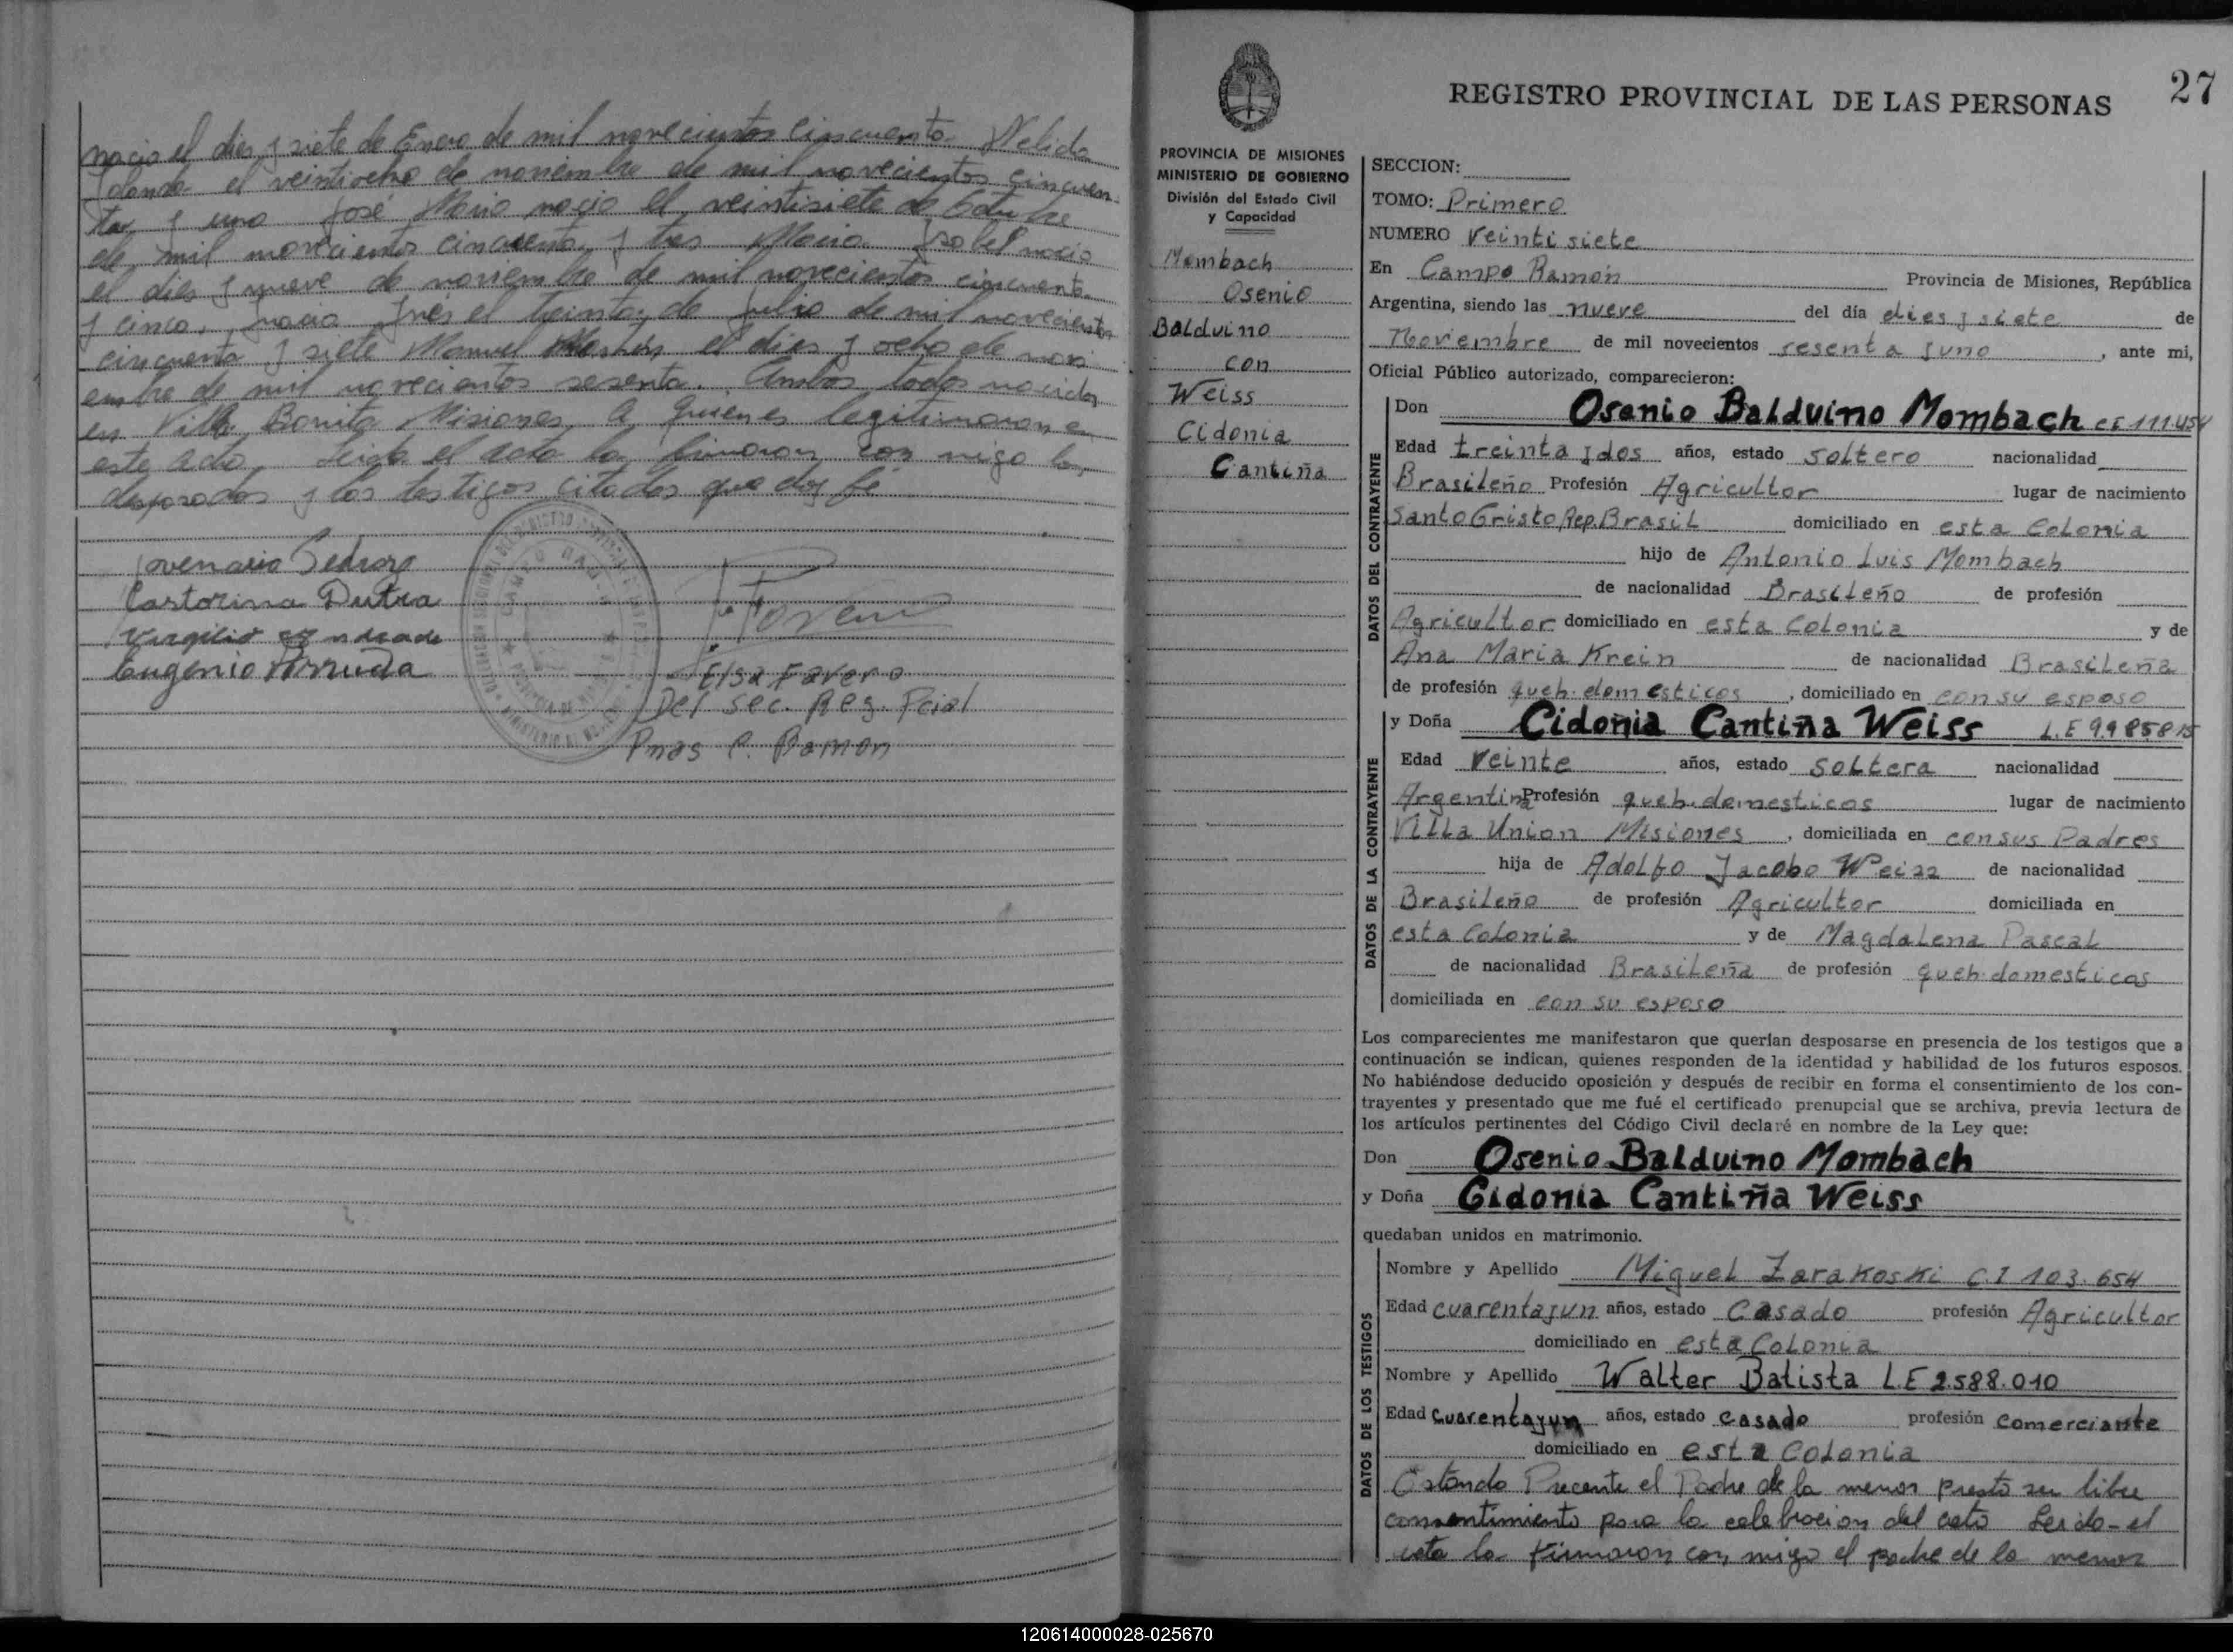 nacio el dies y siete de Enero de mil novecientos cincuenta. Nelida
Iolanda el veintiocho de noviembre de mil novecientos cincuen-
ta y uno José Mario nacio el veintisiete de Octubre
de mil novecientos cincuenta y tres Maria Isabel nacio
el dies y nueve de noviembre de mil novecientos cincuenta
y cinco, Inés el treinta de Julio de mil novecientos
cincuenta y siete Manuel el dies y ocho de novi
embre de mil novecientos sesenta. Ambos todos nacidos
en Villa Bonita Misiones a quienes legitimaron en
este acto, Leida el acta la firmaron con migo los
desposados y los testigos citados que doy fé
Jovenario Pedrozo
Castorina Dutra
Virgilio Andrade
Eugenio Arruda
Elsa Favero
Del Sec. Reg. Pcial
Pnas C. Ramon
27
REGISTRO PROVINCIAL DE LAS PERSONAS
PROVINCIA DE MISIONES
MINISTERIO DE GOBIERNO
División del Estado Civil
y Capacidad
Mombach
Osenio
Balduino
con
Weiss
Cidonia
Cantiña
SECCION:
TOMO: Primero
NUMERO Veinti siete
En Campo Ramón Provincia de Misiones, República
Argentina, siendo las nueve del día dies y siete de
Noviembre de mil novecientos sesenta y uno, ante mi,
Oficial Público autorizado, comparecieron:
DATOS DEL CONTRAYENTE
Don Osenio Balduino Mombach 111.454
Edad treinta y dos años, estado soltero nacionalidad
Brasileño Profesión Agricultor lugar de nacimiento
Santo Cristo Rep. Brasil domiciliado en esta Colonia
hijo de Antonio Luis Mombach
de nacionalidad Brasileño de profesión
Agricultor domiciliado en esta Colonia y de
Ana Maria Krein de nacionalidad Brasileña
de profesión queh. domesticos, domiciliado en con su esposo
DATOS DE LA CONTRAYENTE
y Doña Cidonia Cantiña Weiss L.E 9.985815
Edad Veinte años, estado soltera nacionalidad
Argentina Profesión queh. domesticos lugar de nacimiento
Villa Union Misiones, domiciliada en con sus Padres
hija de Adolfo Jacobo Weiss de nacionalidad
Brasileño de profesión Agricultor domiciliada en
esta Colonia y de Magdalena Pascal
de nacionalidad Brasileña de profesión queh. domesticos
domiciliada en con su esposo
Los comparecientes me manifestaron que querían desposarse en presencia de los testigos que a
continuación se indican, quienes responden de la identidad y habilidad de los futuros esposos.
No habiéndose deducido oposición y después de recibir en forma el consentimiento de los con-
trayentes y presentado que me fué el certificado prenupcial que se archiva, previa lectura de
los artículos pertinentes del Código Civil declaré en nombre de la Ley que:
Don Osenio Balduino Mombach
y Doña Cidonia Cantiña Weiss
quedaban unidos en matrimonio.
DATOS DE LOS TESTIGOS
Nombre y Apellido Miguel Zarakoski C.I 103.654
Edad cuarenta y un años, estado Casado profesión Agricultor
domiciliado en esta Colonia
Nombre y Apellido Walter Batista L.E 2.588.010
Edad cuarenta y un años, estado casado profesión comerciante
domiciliado en esta Colonia
Estando Precente el Padre de la menor presto su libre
consentimiento para la celebracion del acto Leida el
acta la firmaron con migo el padre de la menor
120614000028-025670